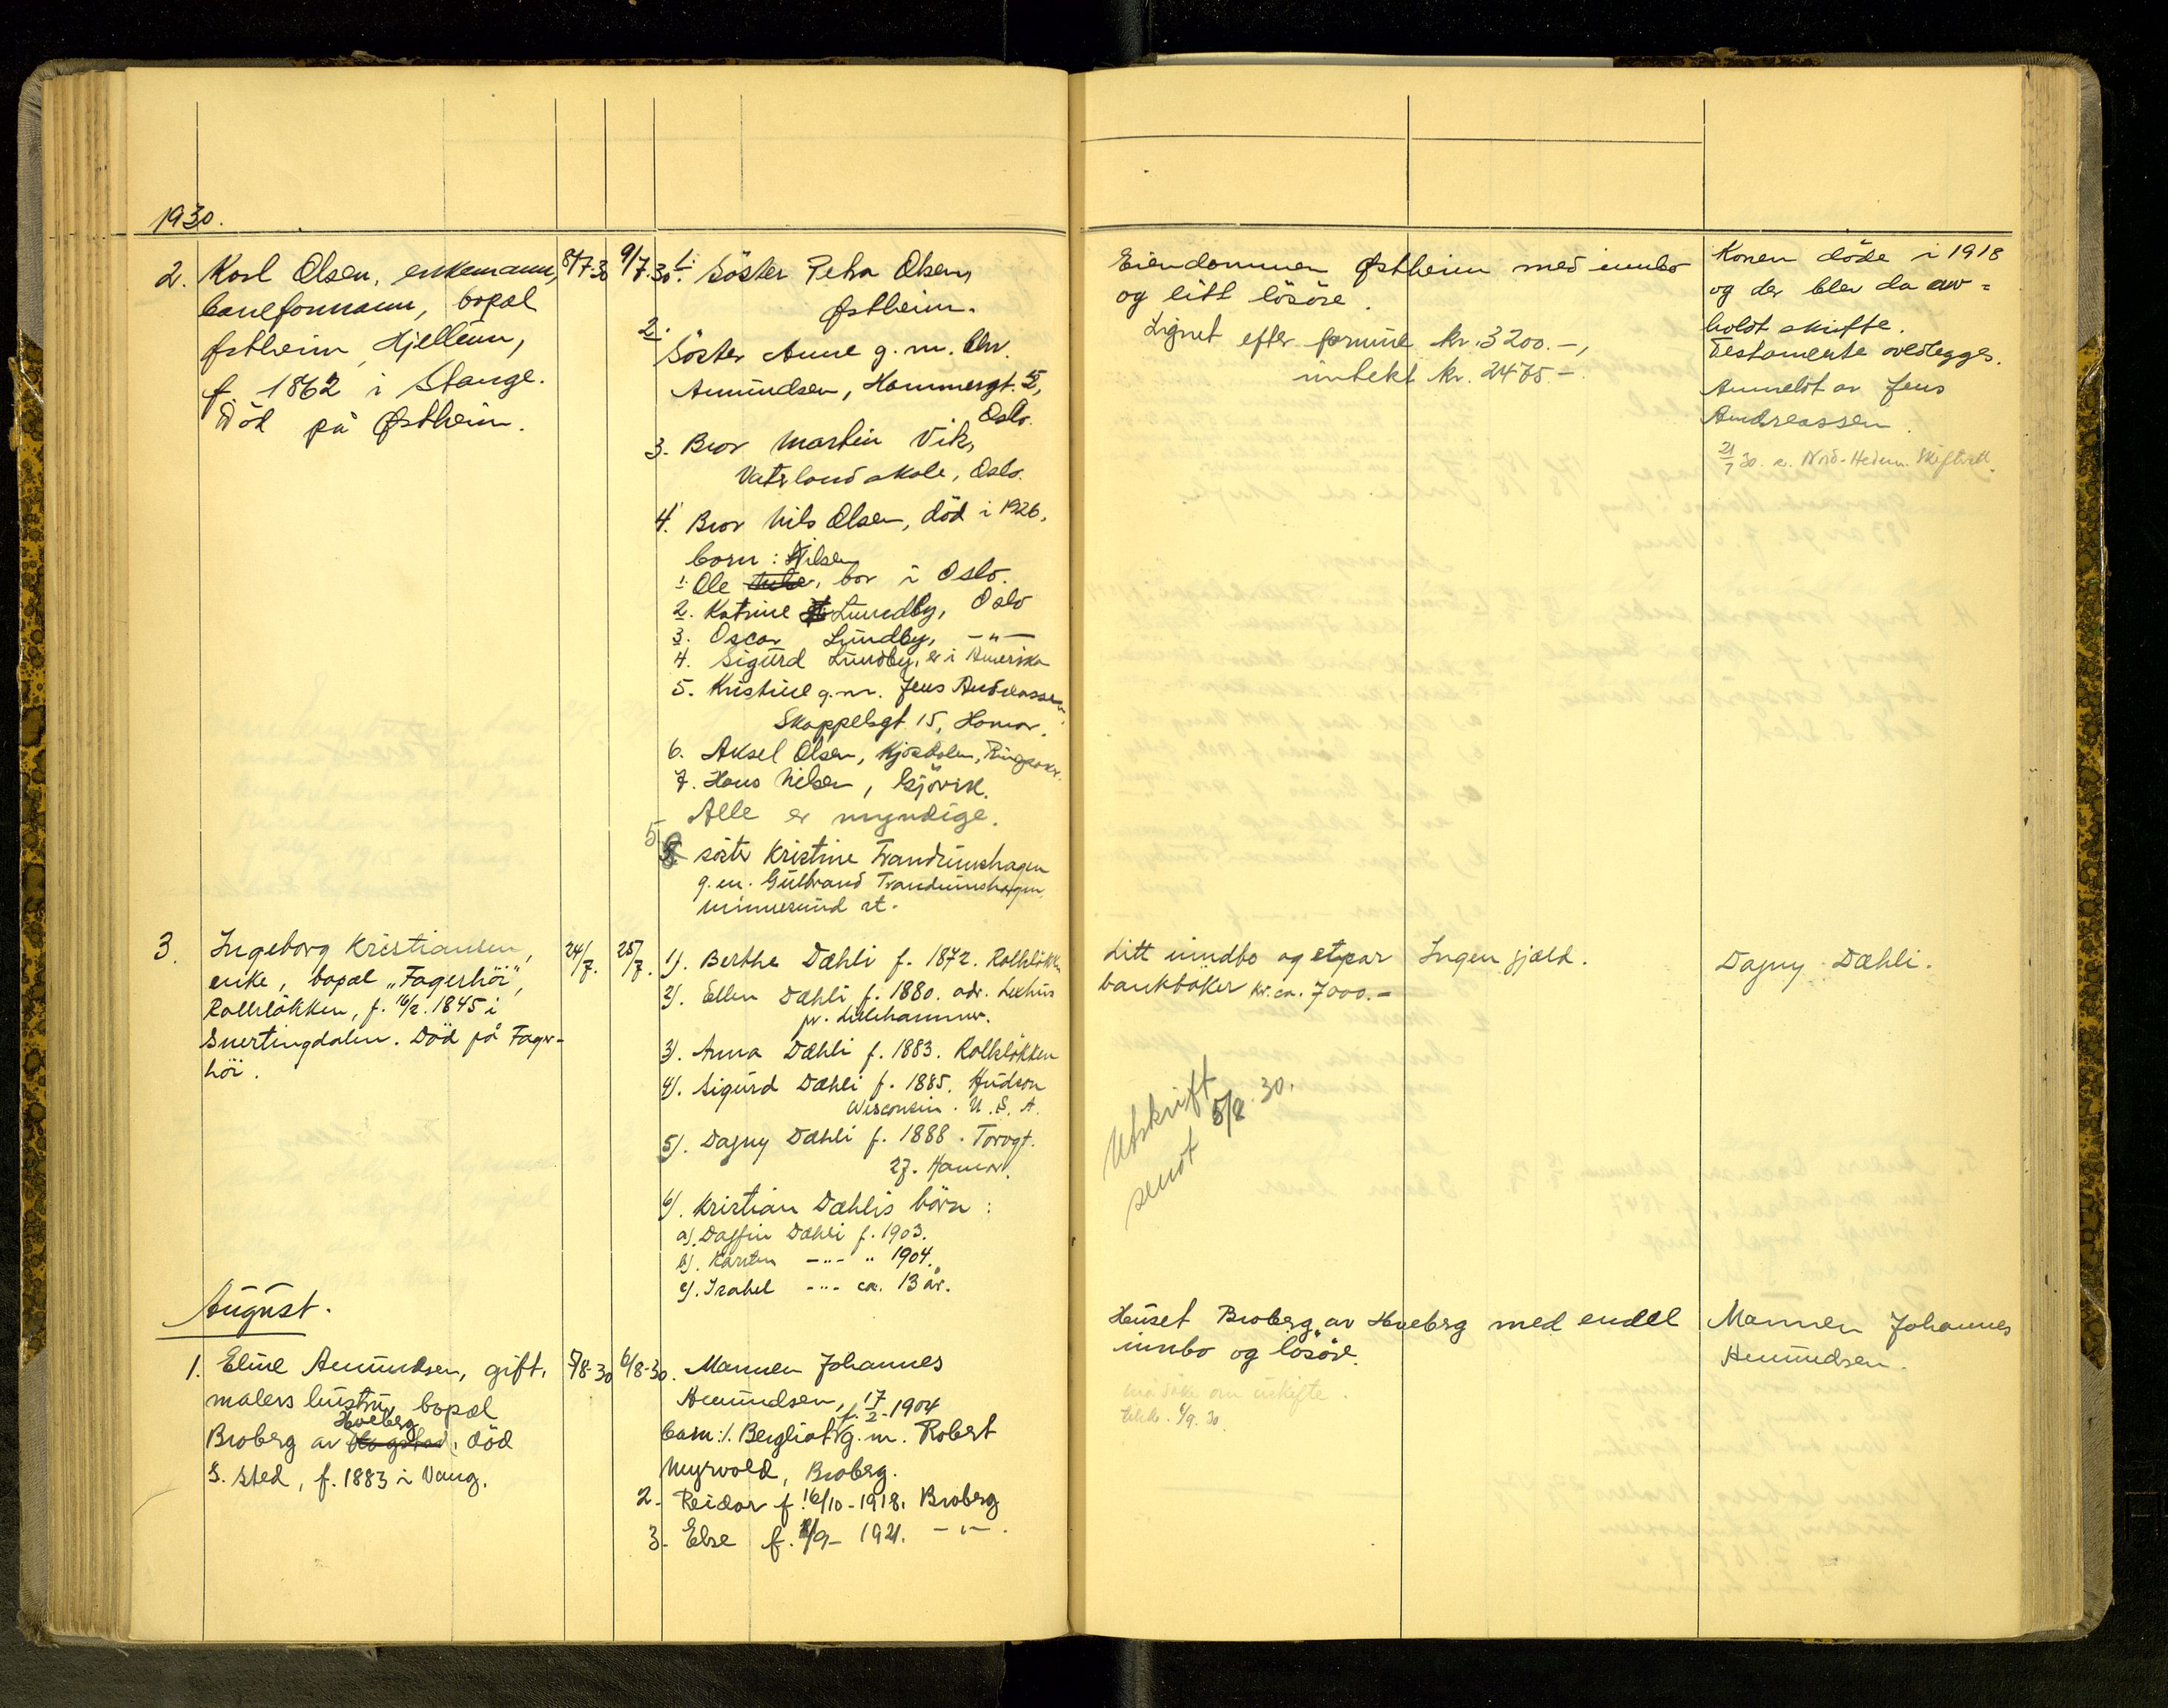 1930.
2. Karl Olsen, enkemann,
baneformann, bopæl
Østheim, Hjellum,
f. 1862 i Stange.
Död på Østheim.
8/7.30
9/7.30.
1. Söster Petra Olsen,
Østheim.
2. Söster Anne g. m. Chr.
Amundsen, Hammergt. 5,
Oslo.
3. Bror Martin Vik,
Vaterland skole, Oslo.
4. Bror Nils Olsen, död i 1926,
born: Nilsen
1. Ole, bor i Oslo.
2. Katrine Lundby, Oslo
3. Oscar Lundby, -"-
4. Sigurd Lundby, er i Amerika
5. Kristine g. m. Jens Andreassen,
Skappelsgt 15, Hamar.
6. Aksel Olsen, Kjosdalen, Ringsaker.
7. Hans Nilsen, Gjövik.
Alle er myndige.
5 söster Kristine Trandumshagen
g. m. Gulbrand Trandumshagen
Minnesund st.
Eiendommen Østheim med innbo
og litt lösöre.
Lignet efter formue kr. 3200.-,
inntekt kr. 2475.-
Konen döde i 1918
og der blev da av=
holdt skifte.
Testamente vedlegges.
Anmeldt av Jens
Andreassen.
21/7 30. s. Nord-Hedm. Skifterett.
3. Ingeborg Kristiansen,
enke, bopæl "Fagerhöi",
Rollsløkken, f. 16/2. 1845 i
Snertingdalen. Död på Fager-
höi.
24/7.
25/7.
1). Berthe Dæhli f. 1872. Rollsløkken
2). Ellen Dæhli f. 1880. adr. Lexhus
pr. Lillehammer.
3). Anna Dæhli f. 1883. Rollsløkken
4). Sigurd Dæhli f. 1885. Hudson
Wisconsin. U. S. A.
5). Dagny Dæhli f. 1888. Torvgt.
27. Hamar.
6). Kristian Dæhlis börn:
a). Dagfin Dæhli f. 1903.
b). Karsten -"- " 1904.
c). Isabel -"- ca. 13 år.
Litt inndbo og etpar
bankbøker kr. ca. 7000.-
Ingen gjæld.
Dagny Dæhli.
Utskrift
sendt 5/8. 30.
August.
1. Eline Amundsen, gift,
malers hustru, bopæl
Hoeberg
Broberg av Hogstad, död
s. sted, f. 1883 i Vang.
5/8-30
6/8-30.
Mannen Johannes
Amundsen, f. 17/2-1904
barn: 1. Bergliot g. m. Robert
Myrvold, Broberg.
2. Reidar f. 16/10-1918, Broberg
3. Else f. /9- 1921. -"-.
Huset Broberg av Hoeberg med endel
innbo og lösöre.
må söke om uskifte.
6/9. 30.
Mannen Johannes
Amundsen.